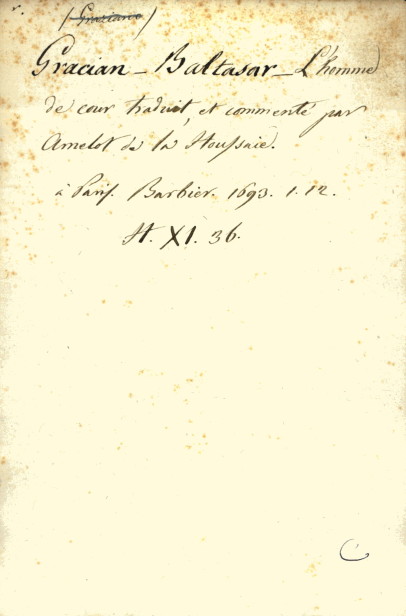 (Graziano)
Gracian - Baltasar - L'homme
de cour traduit, et commenté par
Amelot de la Houssaie.
à Paris. Barbier. 1693. 1. 12.
St. XI. 36.
C